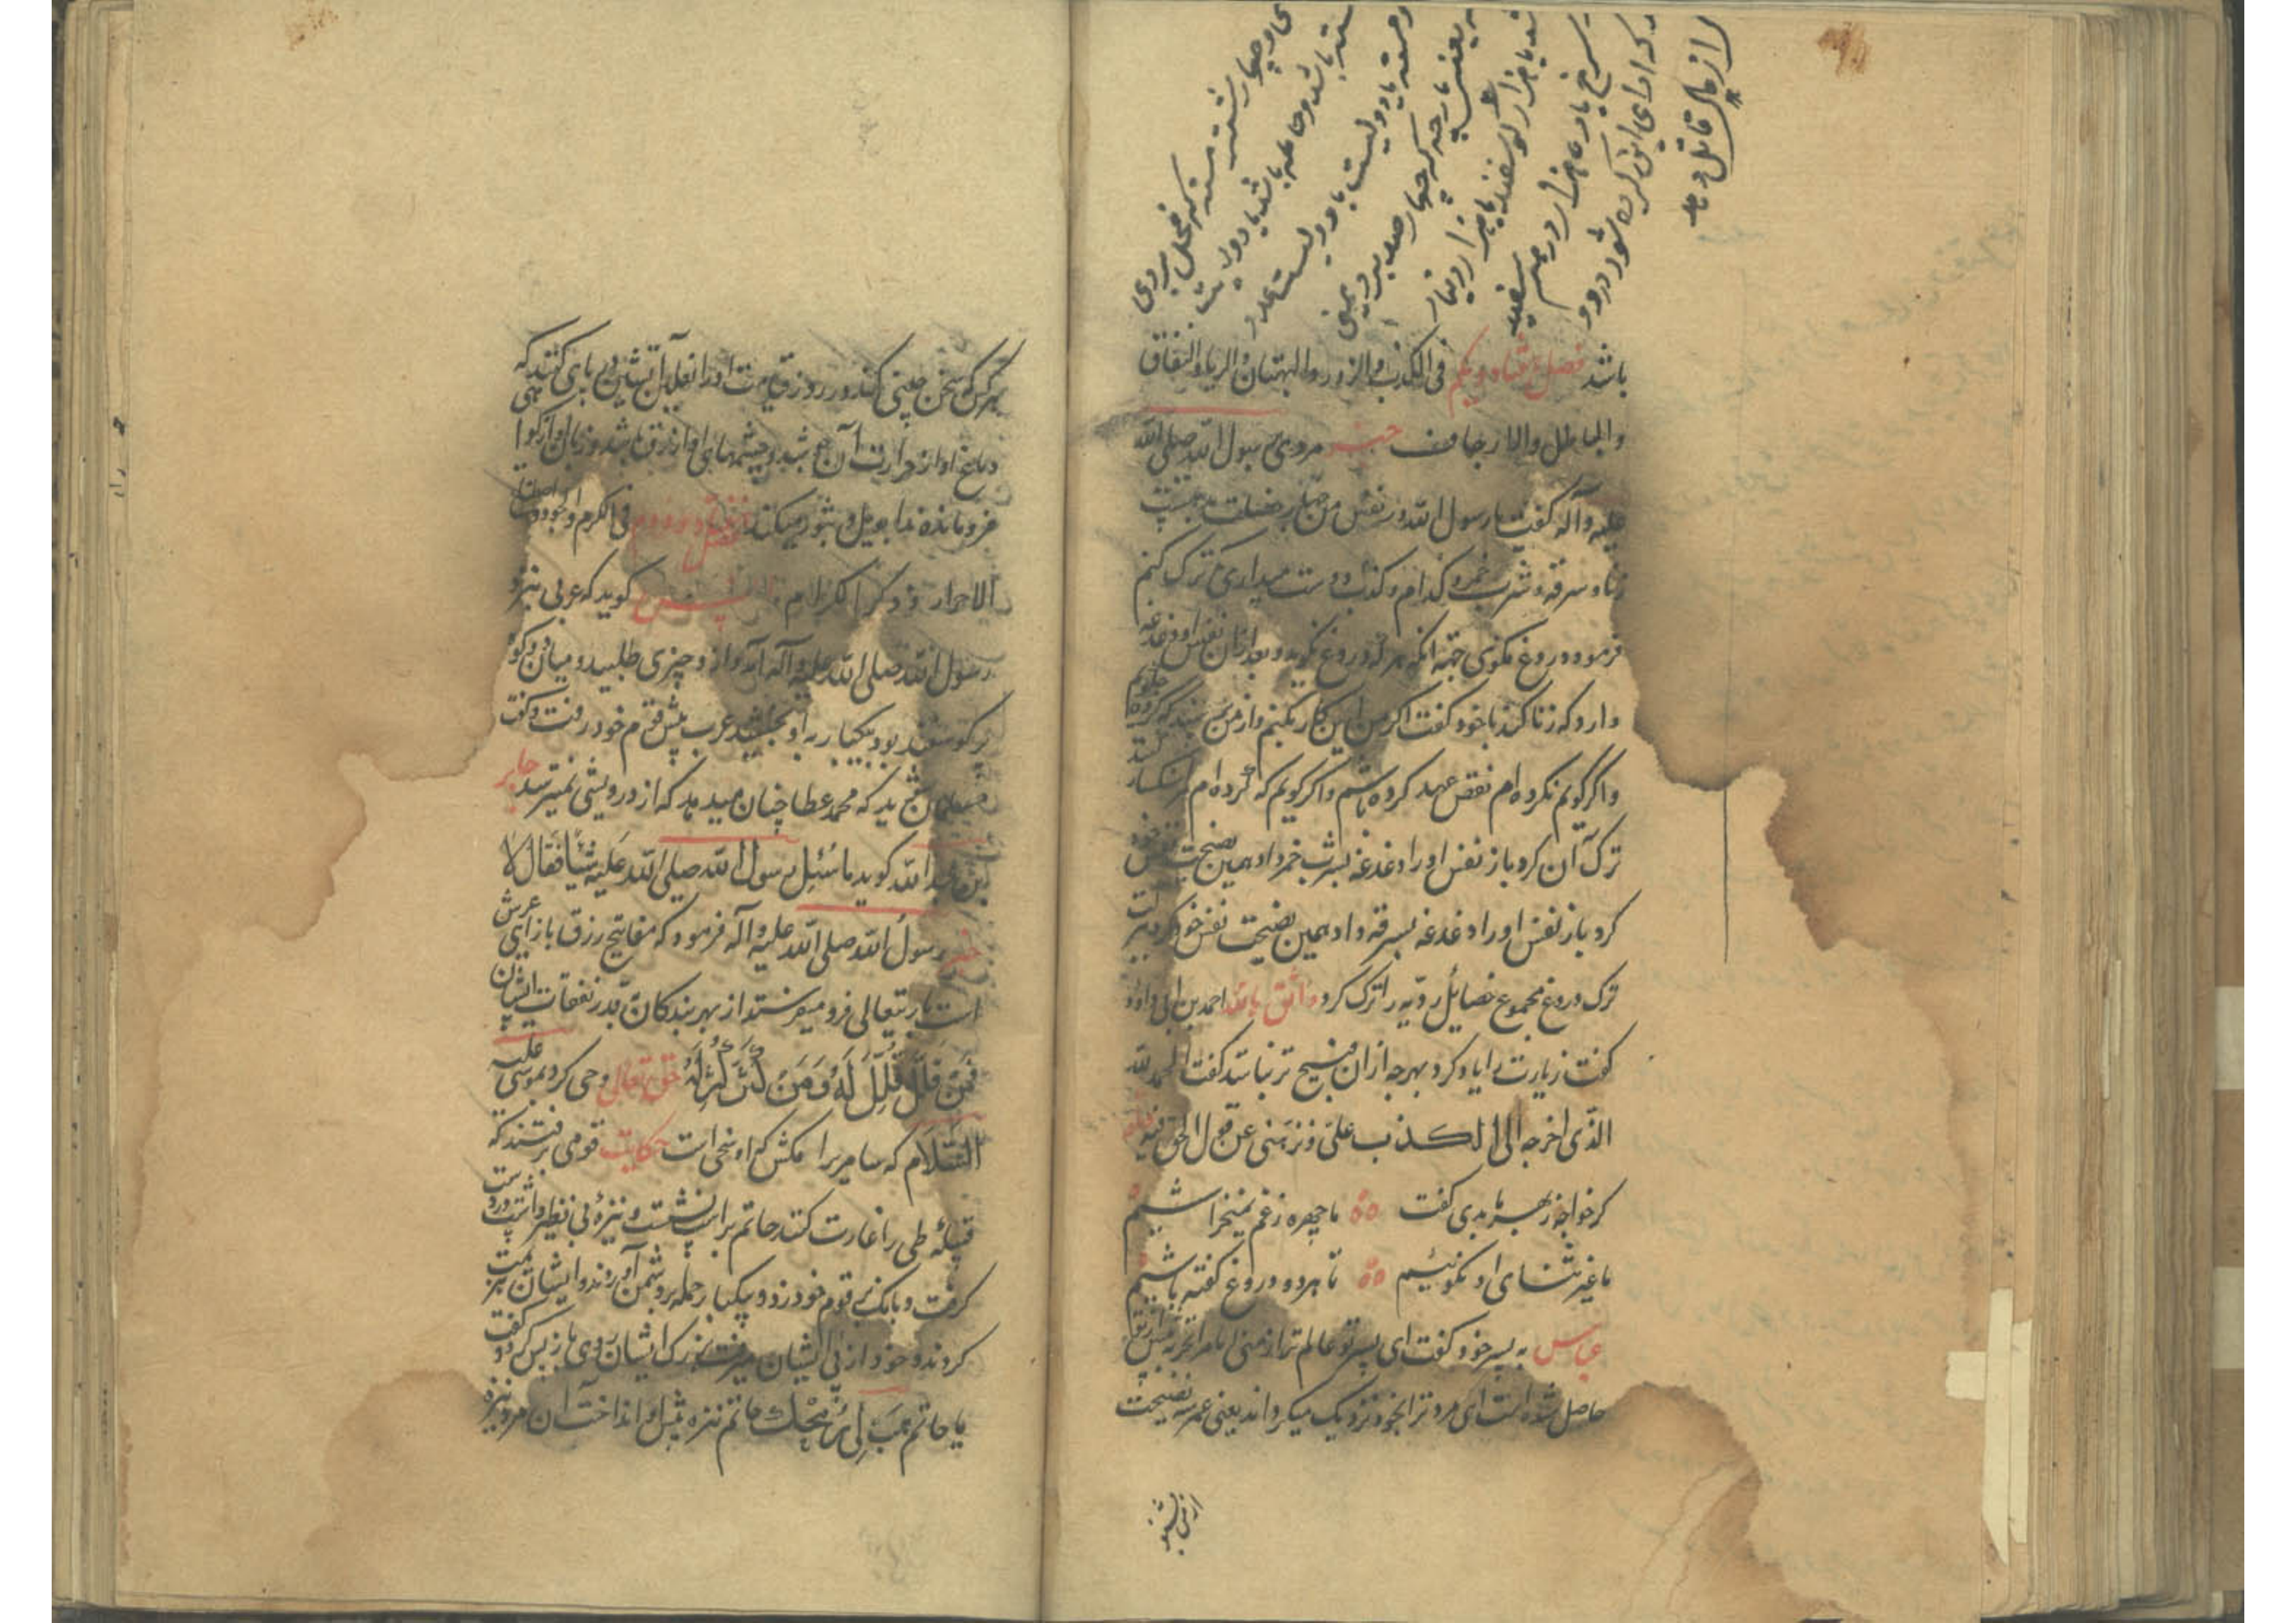 را از مال قاتل و ما
که ادای این کرده شود در دو
سرخ یا ده هزار درم سفید
یا هزار گوسفند یا هزار دینار
یعنی پارچه که چهار صد برد یمنی
یا دویست یا دویست عدد
باشد و حامله باشد یا دویست
و چهار شتر مسنه که فحل بروی
باشد فصل هفتاد و یکم فی الکذب و الزور و البهتان و الریا و النفاق
و الباطل و الارجاف خبر مردی رسول الله صلی الله
علیه و آله گفت یا رسول الله در نفس من چهار خصلت بد هست
زنا و سرقه و شرب خمر و کذب کدام دوست میداری که ترک کنم
فرمود دروغ مگوی جهة آنکه هر که دروغ نگوید و بعد از آن نفس او دغدغه
دارد که زنا کند با خود گفت اگر من این کار بکنم و از من پرسند که کرده
و اگر گویم نکرده ام نقض عهد کرده باشم و اگر گویم که کرده ام سنکسار کنند
ترک آن کرد باز نفس او را دغدغه بشرب خمر داد همین نصیحت نفس خود
کرد باز نفس او را دغدغه بسرقه داد همین نصیحت نفس خود کرد
ترک دروغ مجموع خصایل ردیه را ترک کرد واثق بالله احمد بن ابی داود
گفت زیارت را یاد کرد بهرچه از آن قبیح تر نباشد گفت الحمد لله
الذی اخرجه الی الکذب علی و نزهنی عن قول الحق فیه
گر خواجه ز بهر ما بدی گفت ما چهره ز غم نمیخراشیم
ما غیر ثنای او نگوئیم تا هر دو دروغ گفته باشیم
عباس به پسر خود گفت ای پسر تو عالم تر از منی اما مرا تجربه بیش از تو
حاصل شده است این مرد ترا بخود نزدیک میگرداند یعنی عمر سه نصیحت
از من بشنو
هر کس که سخن چینی کند در روز قیامت او را نعلین آتشین در پای کنند که
دماغ او از حرارت آن بجوشد و چشمهای او ازرق باشد و زبان او از گوا
فرو مانده ندا بویل و ثبور میکند فصل هفتاد و دوم فی الکرم و الجود و
الاحرار و ذکر الکرام انس گوید که عربی نزد
رسول الله صلی الله علیه و آله آمد و از و چیزی طلبید و میان دو کوه
پر گوسفند بود بیکبار به او بخشید عرب پیش قوم خود رفت و گفت
مسلمان شوید که محمد عطا چنان میدهد که از درویشی نمیترسد جابر
بن عبد الله گوید ما سُئِل رسول الله صلی الله علیه شیأ فقال لا
خبر رسول الله صلی الله علیه و آله فرمود که مفاتیح رزق بازای عرش
است باریتعالی فرو میفرستد از بهر بندگان بقدر نفقات ایشان
فَمَنْ قَلَّلَ قُلِّلَ لَهُ وَ مَنْ کَثَّرَ کُثِّرَ لَهُ حق تعالی وحی کرد بموسی علیه
السَّلَام که سامریرا مکش که او سخی است حکایت قومی برفتند که
قبیله طی را غارت کنند حاتم بر اسپ نشست و نیزه بی نظیر داشت در دست
گرفت و بانک بر قوم خود زد و بیکبار حمله بر دشمن آوردند و ایشان هزیمت
کردند و خود از پی ایشان میرفت بزرک ایشان روی باز پس کرد و گفت
یا حاتم هَب لی رُمْحَک حاتم نیزه پیش او انداخت آن مرد نیزه